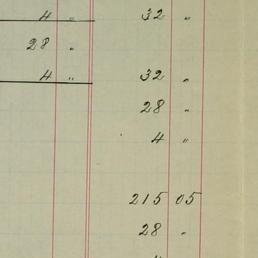 4 " 32 "
28 "
4 " 32 "
28 "
4 "
215 05
28 "